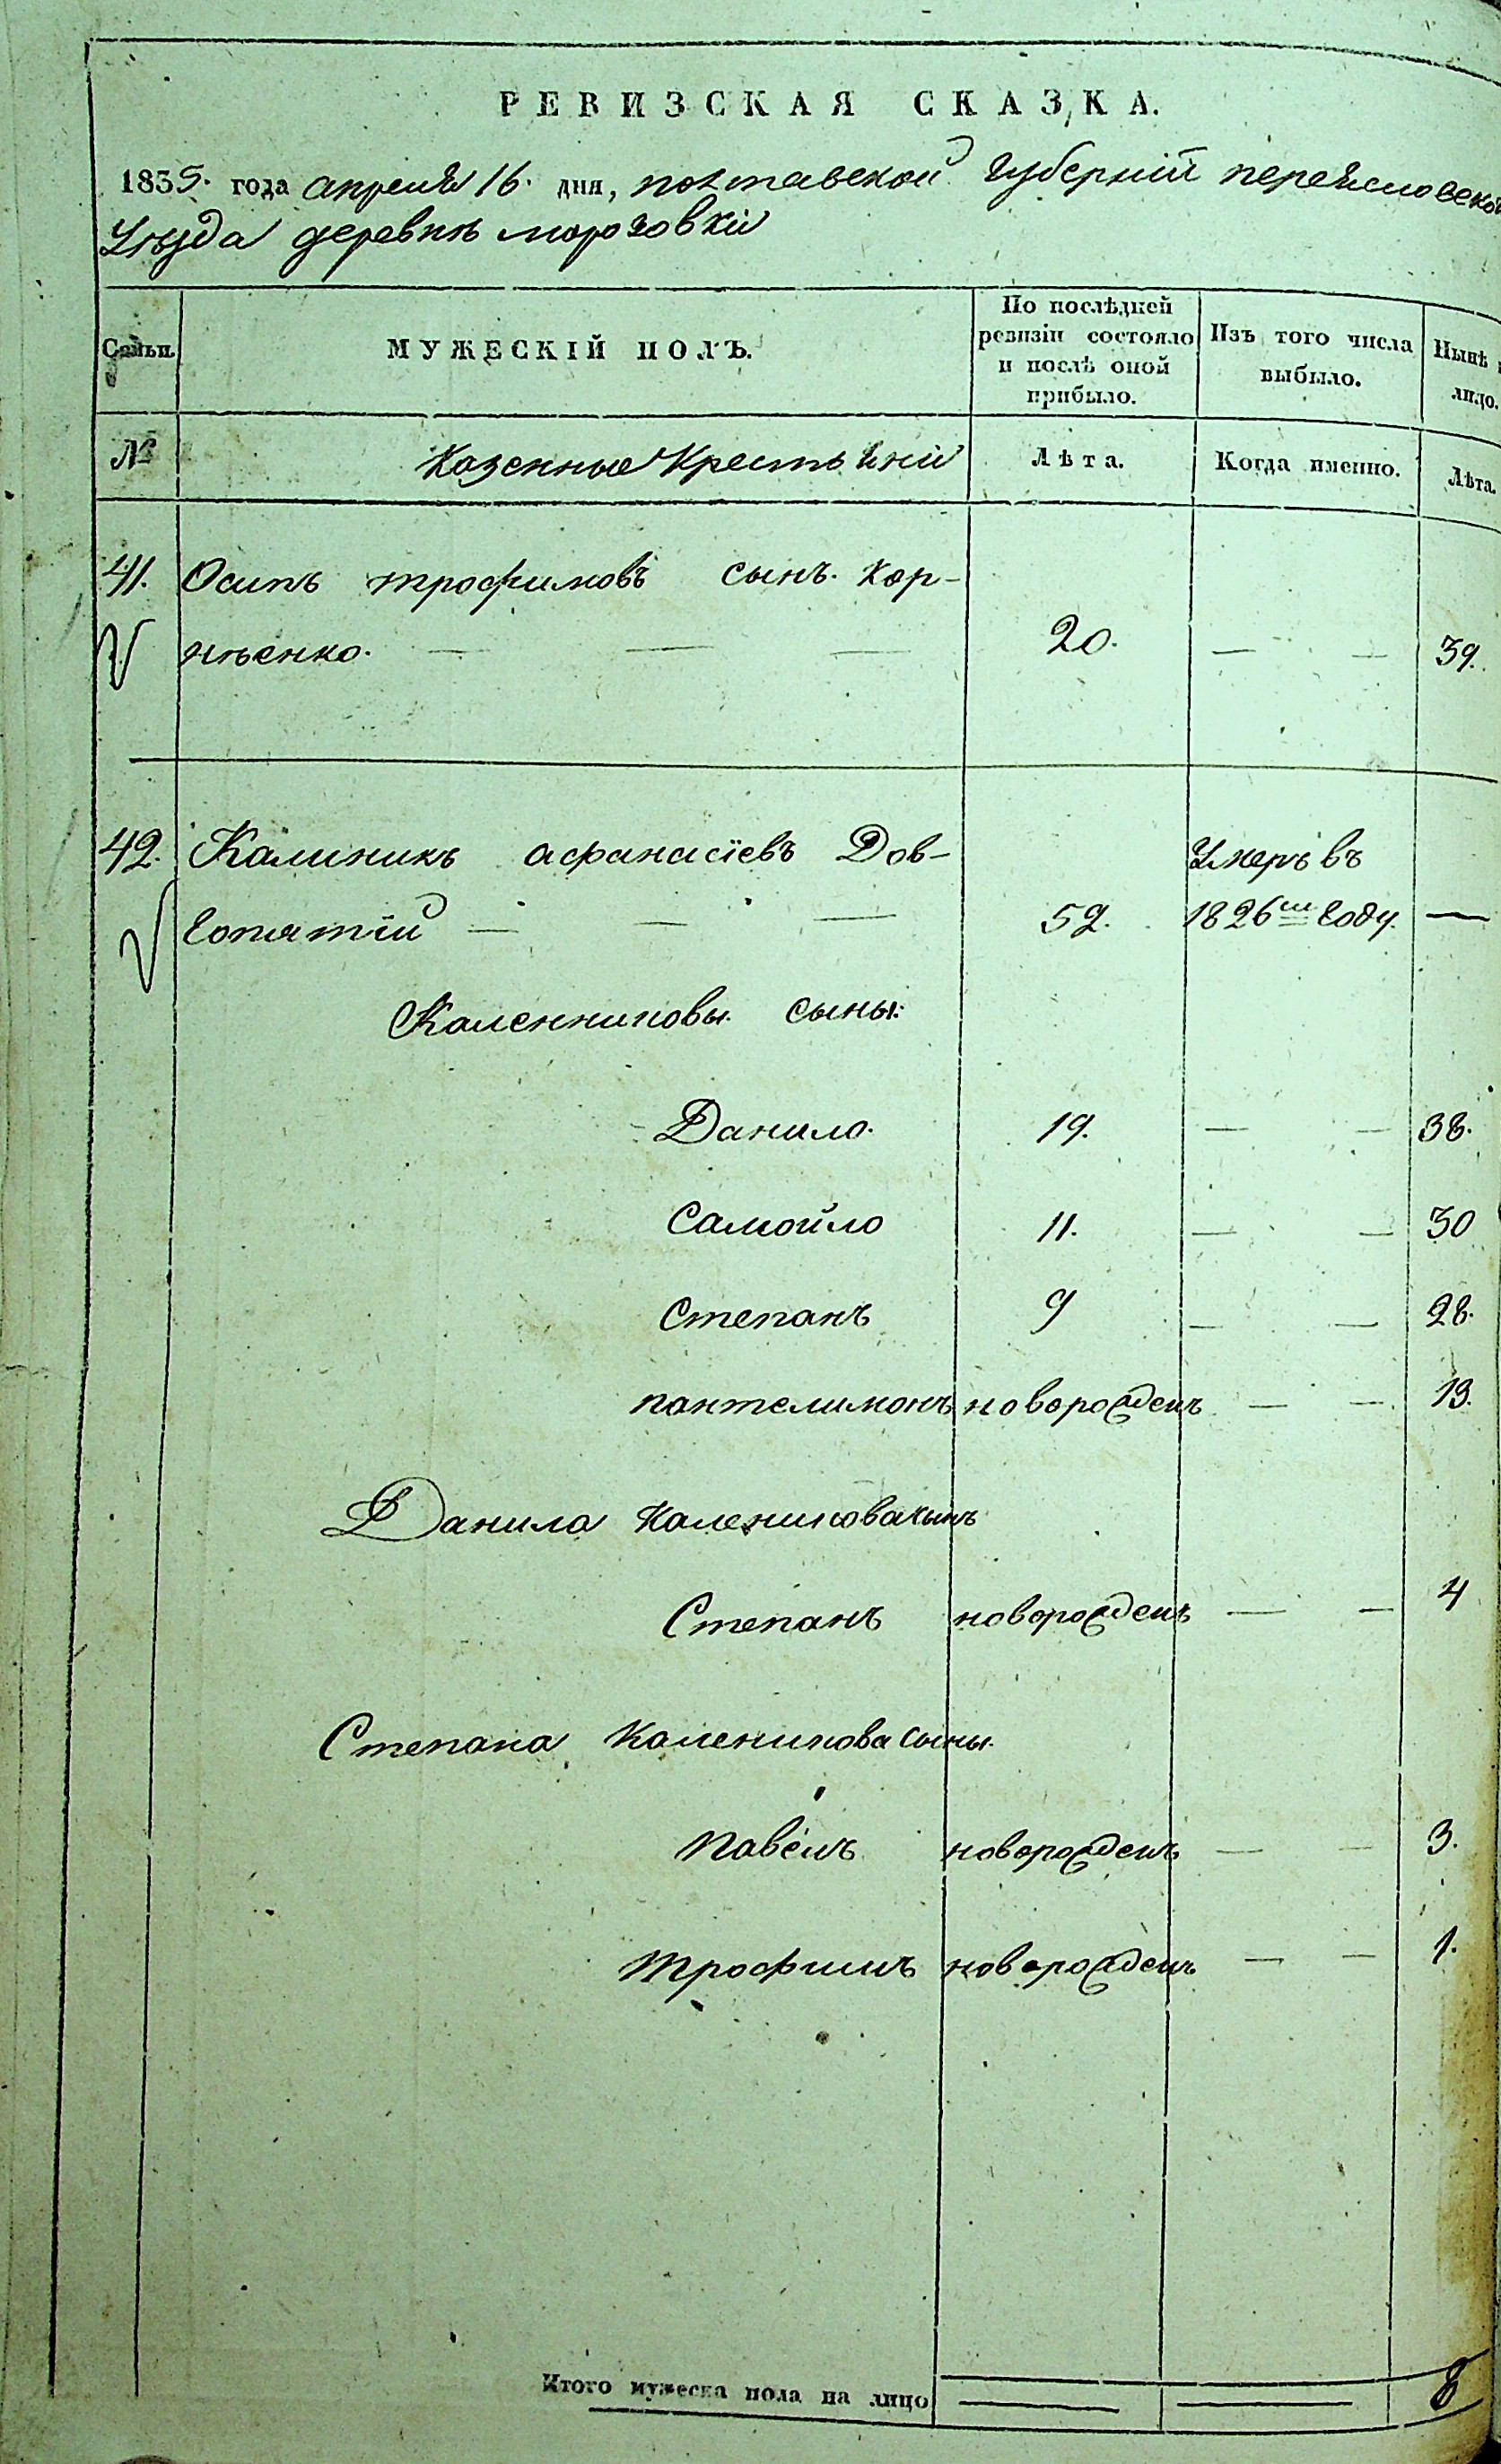 РЕВИЗСКАЯ СКАЗКА.
1835. года апреля 16. дня, полтавской губерніи переяславской
Уезда деревне морозовки
Семьи. МУЖЕСКІЙ ПОЛЪ. По послѣдней ревизіи состояло и послѣ оной прибыло. Изъ того числа выбыло. Нынѣ на лицо.
№ Казенные Крестьяни Лѣта. Когда именно. Лѣта.
41. Осипъ трофимовъ сынъ. Кор-
нѣенко. — — — 20. — — 39.
42. Калиникъ афанасіевъ Дов- Умеръ въ
гопятій — — — 52. 1826м году. —
Каленниковы сыны:
Данило. 19. — — 38.
Самойло 11. — — 30
Степанъ 9 — — 28.
пантелимонъ новорожденъ — — 13.
Данила Каленикова сынъ
Степанъ новорожденъ — — 4
Степана Каленикова сыны.
Павелъ новорожденъ — — 3.
трофимъ новорожденъ — — 1.
Итого мужеска пола на лицо — — 8